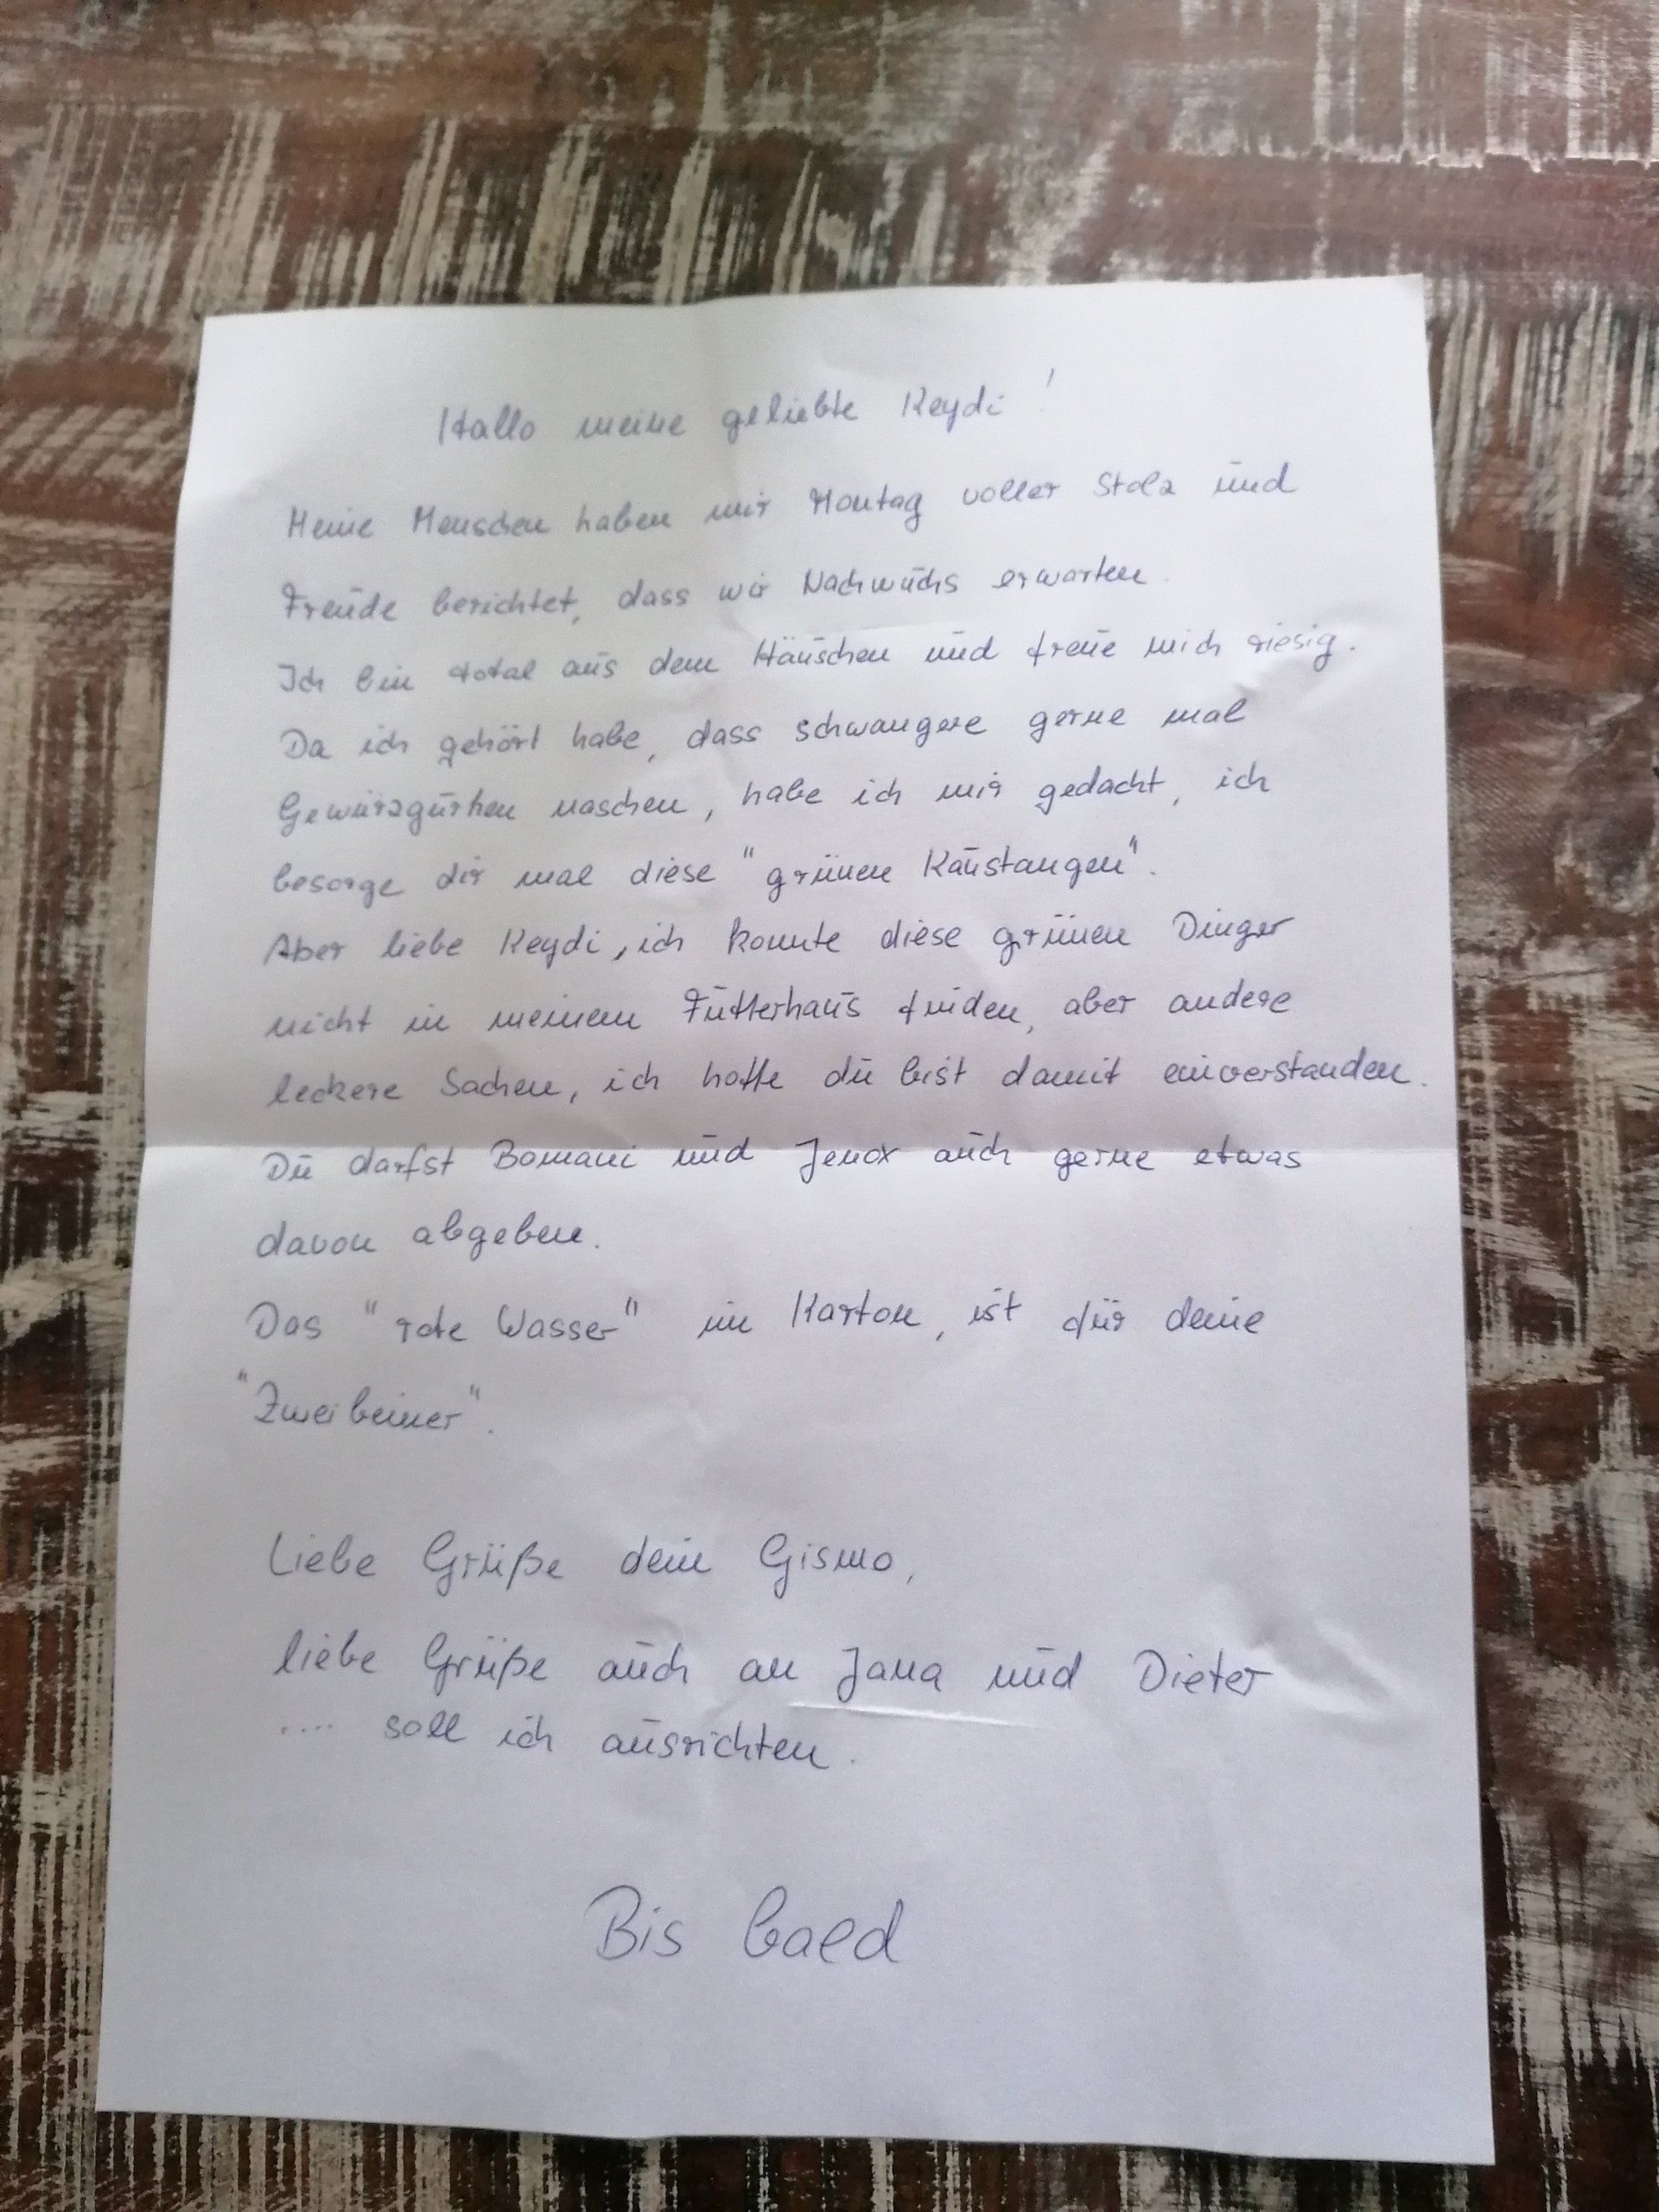 Hallo meine geliebte Keydi!
Meine Menschen haben mir Montag voller Stolz und
Freude berichtet, dass wir Nachwuchs erwarten.
Ich bin total aus dem Häuschen und freue mich riesig.
Da ich gehört habe, dass schwangere gerne mal
Gewürzgurken naschen, habe ich mir gedacht, ich
besorge dir mal diese "grünen Kaustangen".
Aber liebe Keydi, ich konnte diese grünen Dinger
nicht in meinem Futterhaus finden, aber andere
leckere Sachen, ich hoffe du bist damit einverstanden.
Du darfst Bomani und Jenox auch gerne etwas
davon abgeben.
Das "rote Wasser" im Karton, ist für deine
"Zweibeiner".
Liebe Grüße dein Gismo,
liebe Grüße auch an Jana und Dieter
.... soll ich ausrichten.
Bis bald